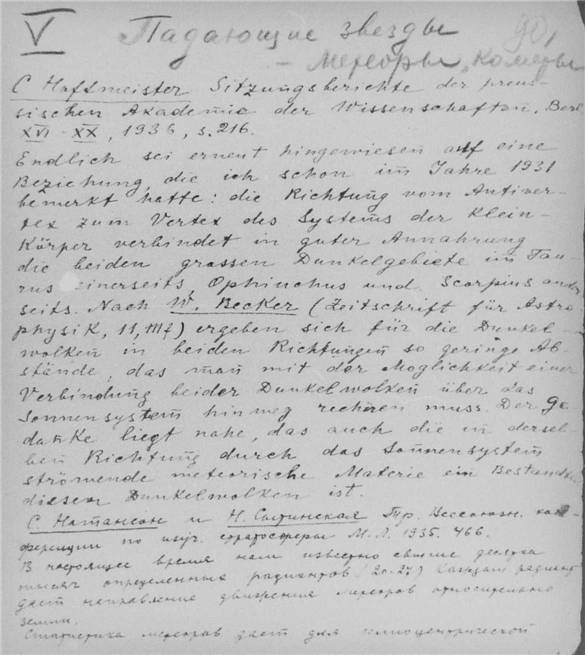 V Падающие звезды 90,
- Метеоры, кометы
C Hoffmeister Sitzungsberichte der preus-
sischen Akademie der Wissenschaften, Berl.
XVI - XX, 1936, s. 216.
Endlich sei erneut hingewiesen auf eine
Beziehung, die ich schon im Jahre 1931
bemerkt hatte: die Richtung vom Antiver-
tex zum Vertex des Systems der Klein-
Körper verbindet in guter Annahrung
die beiden grossen Dunkelgebiete im Tau-
rus einerseits, Ophiuchus und Scorpius ander
seits. Nach W. Becker (Zeitschrift für Astro
physik, 11, Mf) ergeben sich für die Dunkel-
wolken in beiden Richtungen so geringe Ab-
stände, das man mit der Moglichkeit einer
Verbindung beider Dunkelwolken über das
Sonnensystem hinweg rechnen muss. Der Ge
danke liegt nahe, das auch die in dersel-
ben Richtung durch das Sonnensystem
strömende meteorische Materie ein Bestandte
dieser Dunkelwolken ist.
С. Натансон и Н. Сытинская Тр. Всесоюзн. кон-
ференции по изуч. стратосферы М. Л. 1935. 466.
В настоящее время нам известно свыше десятка
тысяч определенных радиантов (20-27) Каждый радиант
дает направление движения метеоров относительно
земли.
Статистика метеоров дает для гелиоцентрической